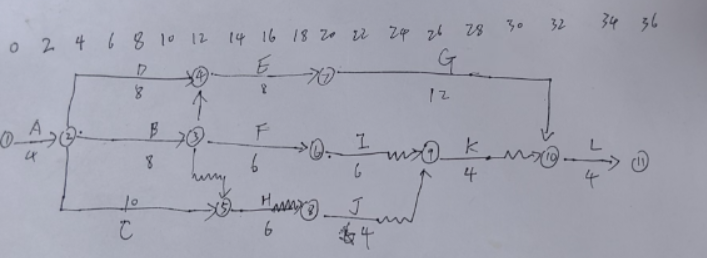 0 2 4 6 8 10 12 14 16 18 20 22 24 26 28 30 32 34 36
D 4 E 7 G
8 8 12
1 A 2 B 3 F 6 I 9 K 10 L 11
4 8 6 6 4 4
10 5 H 8 J
C 6 4